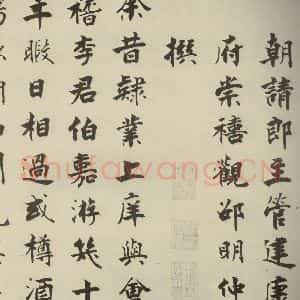 朝請郎主管建康
府崇禧觀邵明仲
撰
余昔隸業上庠與會
稽李君伯嘉游幾十
年暇日相過或樽酒
Shufawang.CN